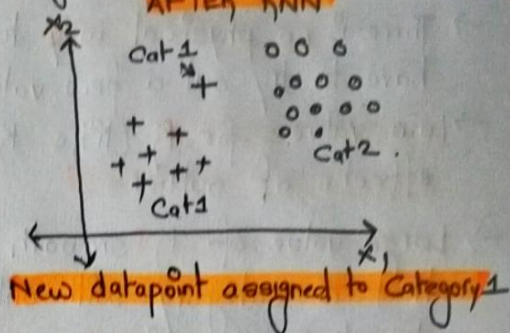 AFTER KNN
X2
Cat 1
Cat 2 .
Cat1
X1
New datapoint assigned to Category 1